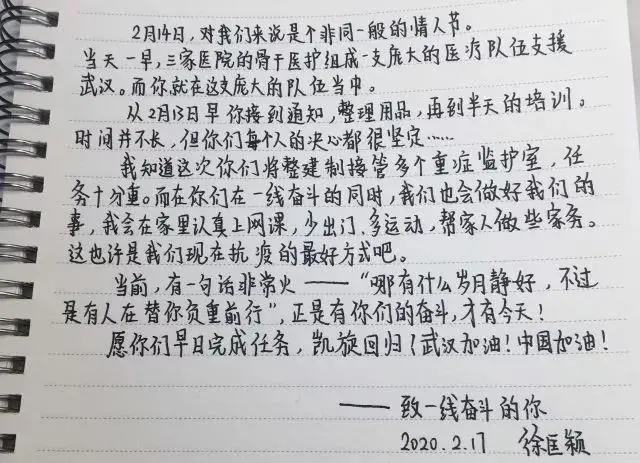 2月14日,对我们来说是个非同一般的情人节。
当天一早,三家医院的骨干医护组成一支庞大的医疗队伍支援
武汉。而你就在这支庞大的队伍当中。
从2月13日早你接到通知,整理用品,再到半天的培训。
时间并不长,但你们每个人的决心都很坚定……
我知道这次你们将整建制接管多个重症监护室,任
务十分重。而在你们在一线奋斗的同时,我们也会做好我们的
事,我会在家里认真上网课,少出门、多运动,帮家人做些家务。
这也许是我们现在抗疫的最好方式吧。
当前,有一句话非常火——“哪有什么岁月静好,不过
是有人在替你负重前行”,正是有你们的奋斗,才有今天!
愿你们早日完成任务,凯旋回归!武汉加油!中国加油!
——致一线奋斗的你
2020.2.17 徐匡颖